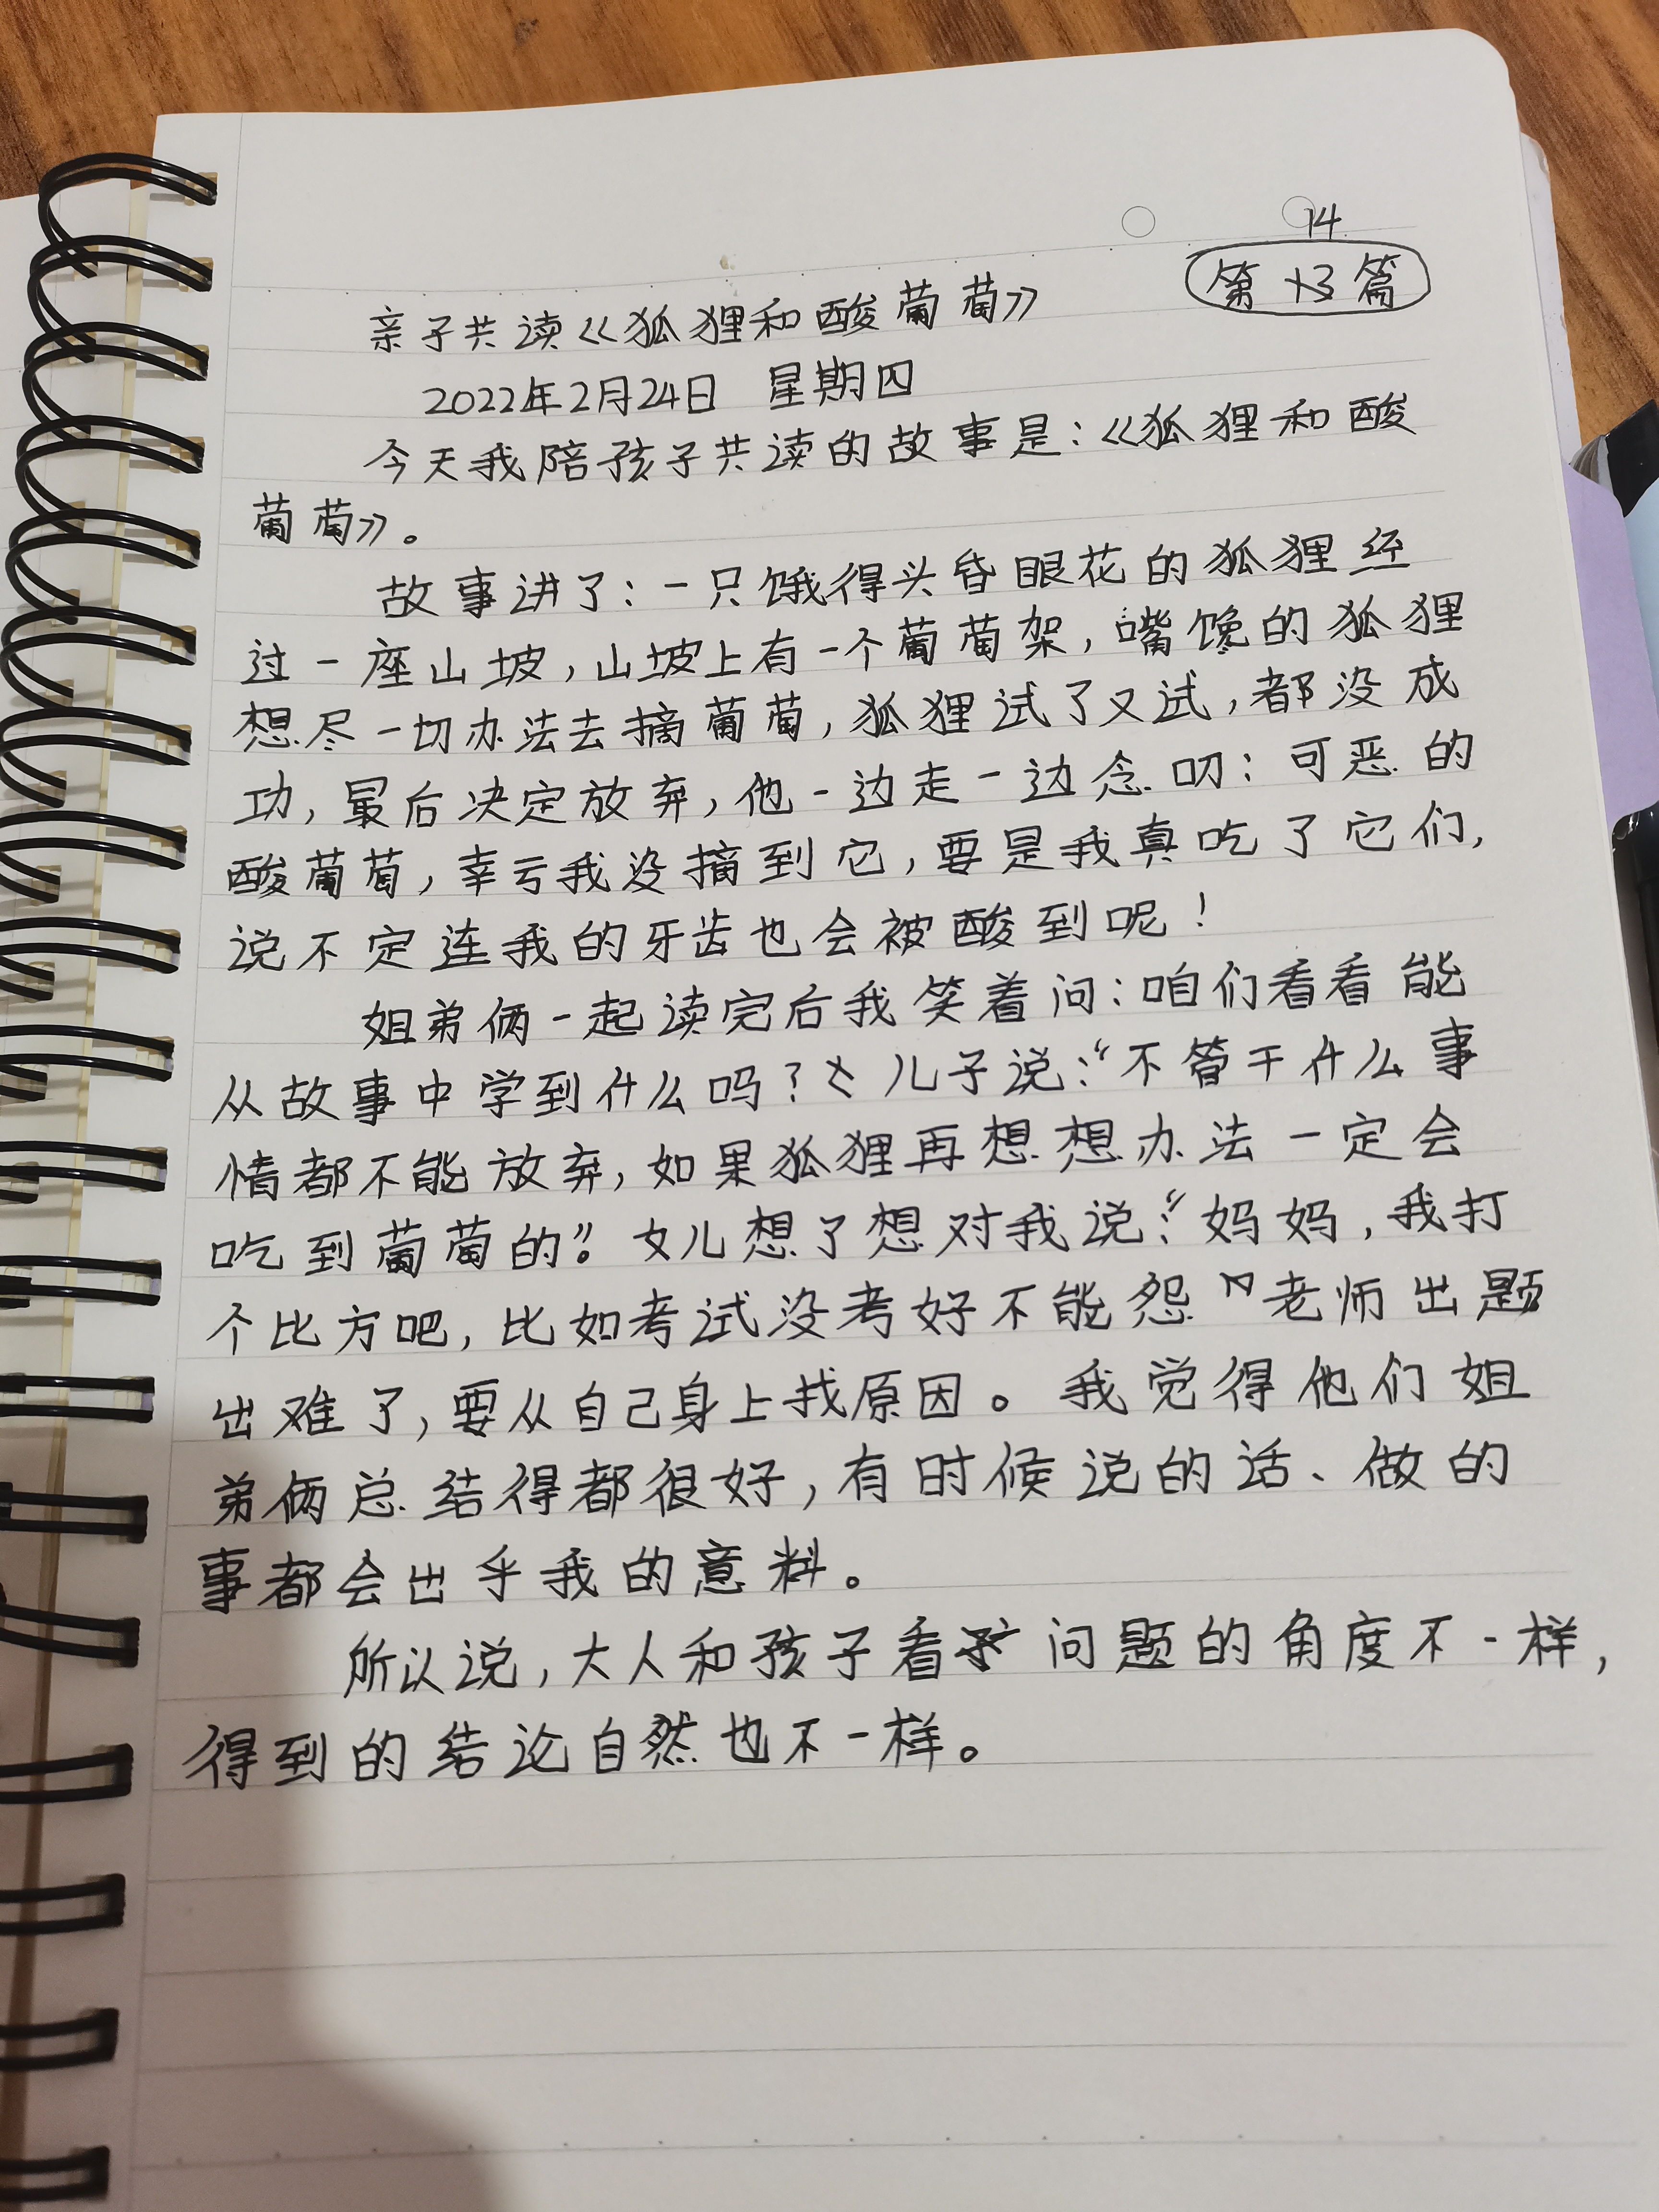 14
第13篇
亲子共读《狐狸和酸葡萄》
2022年2月24日 星期四
今天我陪孩子共读的故事是:《狐狸和酸
葡萄》。
故事讲了:一只饿得头昏眼花的狐狸经
过一座山坡,山坡上有一个葡萄架,嘴馋的狐狸
想尽一切办法去摘葡萄,狐狸试了又试,都没成
功,最后决定放弃,他一边走一边念叨:可恶的
酸葡萄,幸亏我没摘到它,要是我真吃了它们,
说不定连我的牙齿也会被酸到呢!
姐弟俩一起读完后我笑着问:咱们看看能
从故事中学到什么吗?儿子说:“不管干什么事
情都不能放弃,如果狐狸再想想办法一定会
吃到葡萄的”。女儿想了想对我说:“妈妈,我打
个比方吧,比如考试没考好不能怨老师出题
出难了,要从自己身上找原因。我觉得他们姐
弟俩总结得都很好,有时候说的话、做的
事都会出乎我的意料。
所以说,大人和孩子看问题的角度不一样,
得到的结论自然也不一样。